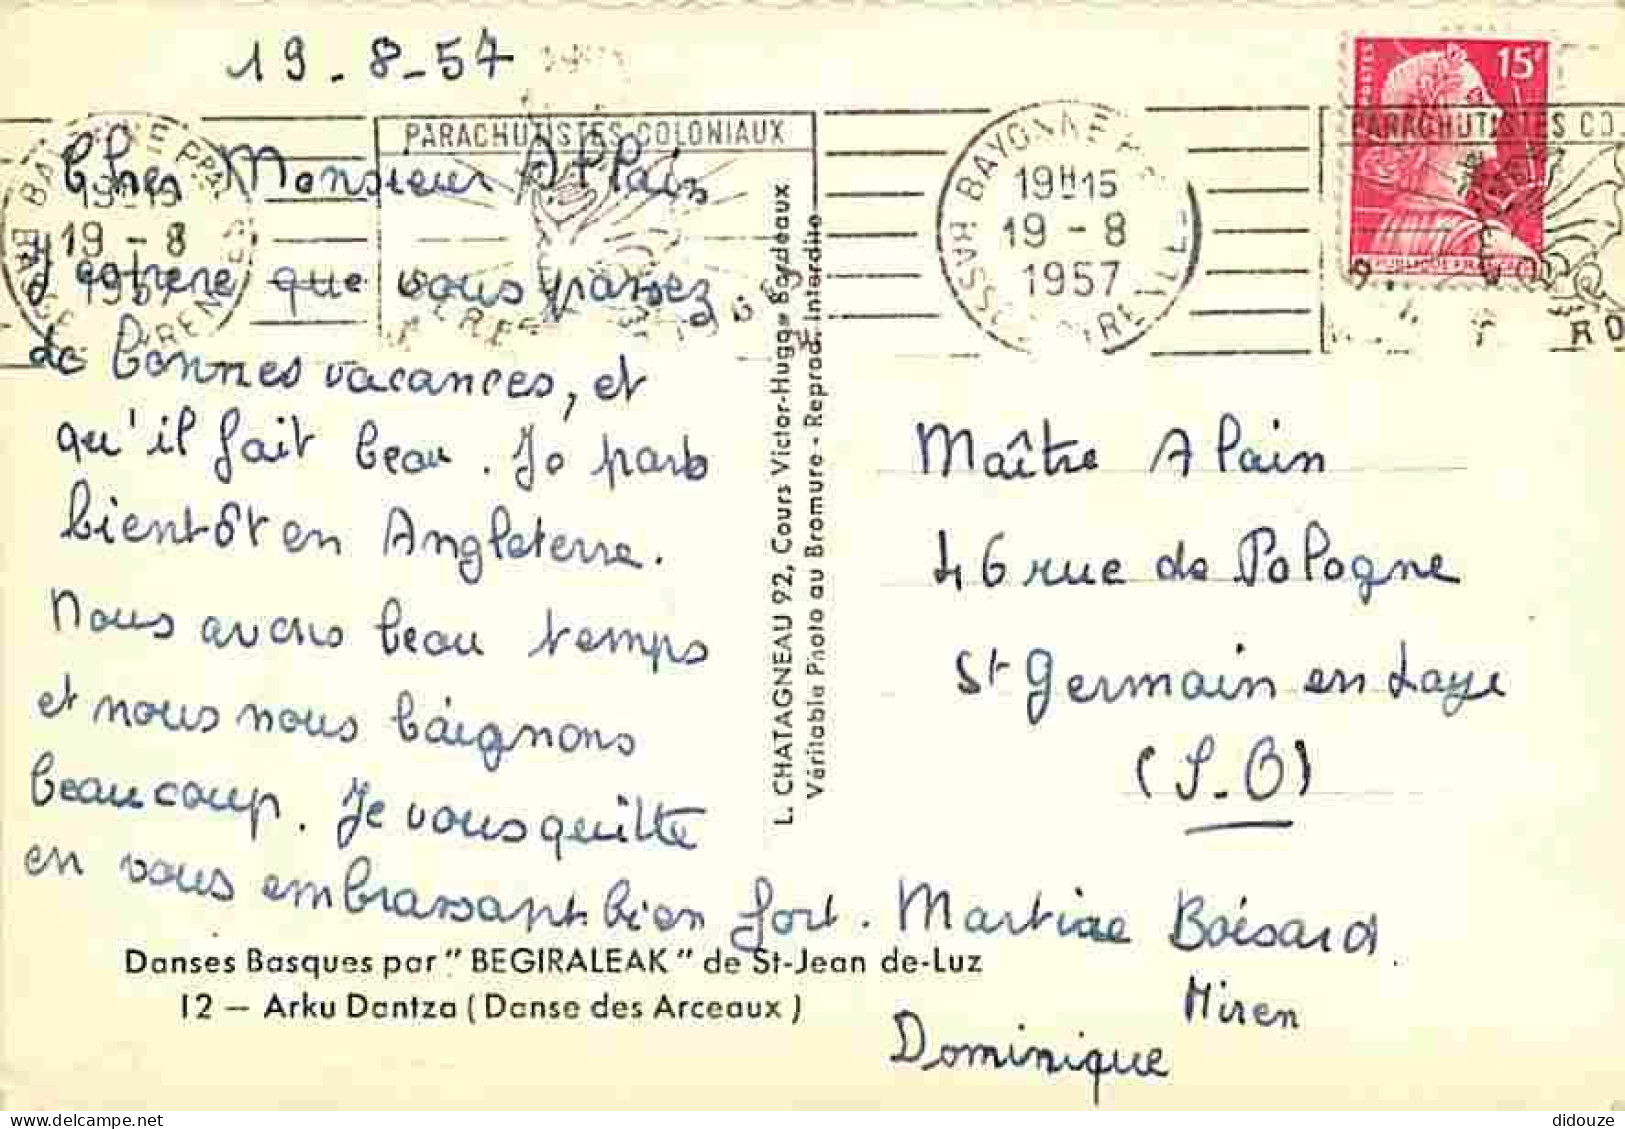 19-8-57
PARACHUTISTES COLONIAUX
Cher Monsieur Allain
J'espère que vous passez
de bonnes vacances, et
qu'il fait beau. Je pars
bientôt en Angleterre.
Nous avons beau temps
et nous nous baignons
beaucoup. Je vous quitte
en vous embrassant bien fort. Martine Boisard
Miren
Dominique
Danses Basques par "BEGIRALEAK" de St-Jean de-Luz
12 — Arku Dantza (Danse des Arceaux)
L. CHATAGNEAU 92, Cours Victor-Hugo Bordeaux
Véritable Photo au Bromure - Reprod. Interdite
BAYONNE
19H15
19 - 8
1957
19 - 8
1957
POSTES
15F
PARACHUTISTES CO
Maître Alain
46 rue de Pologne
St Germain en Laye
(S-O)
didouze